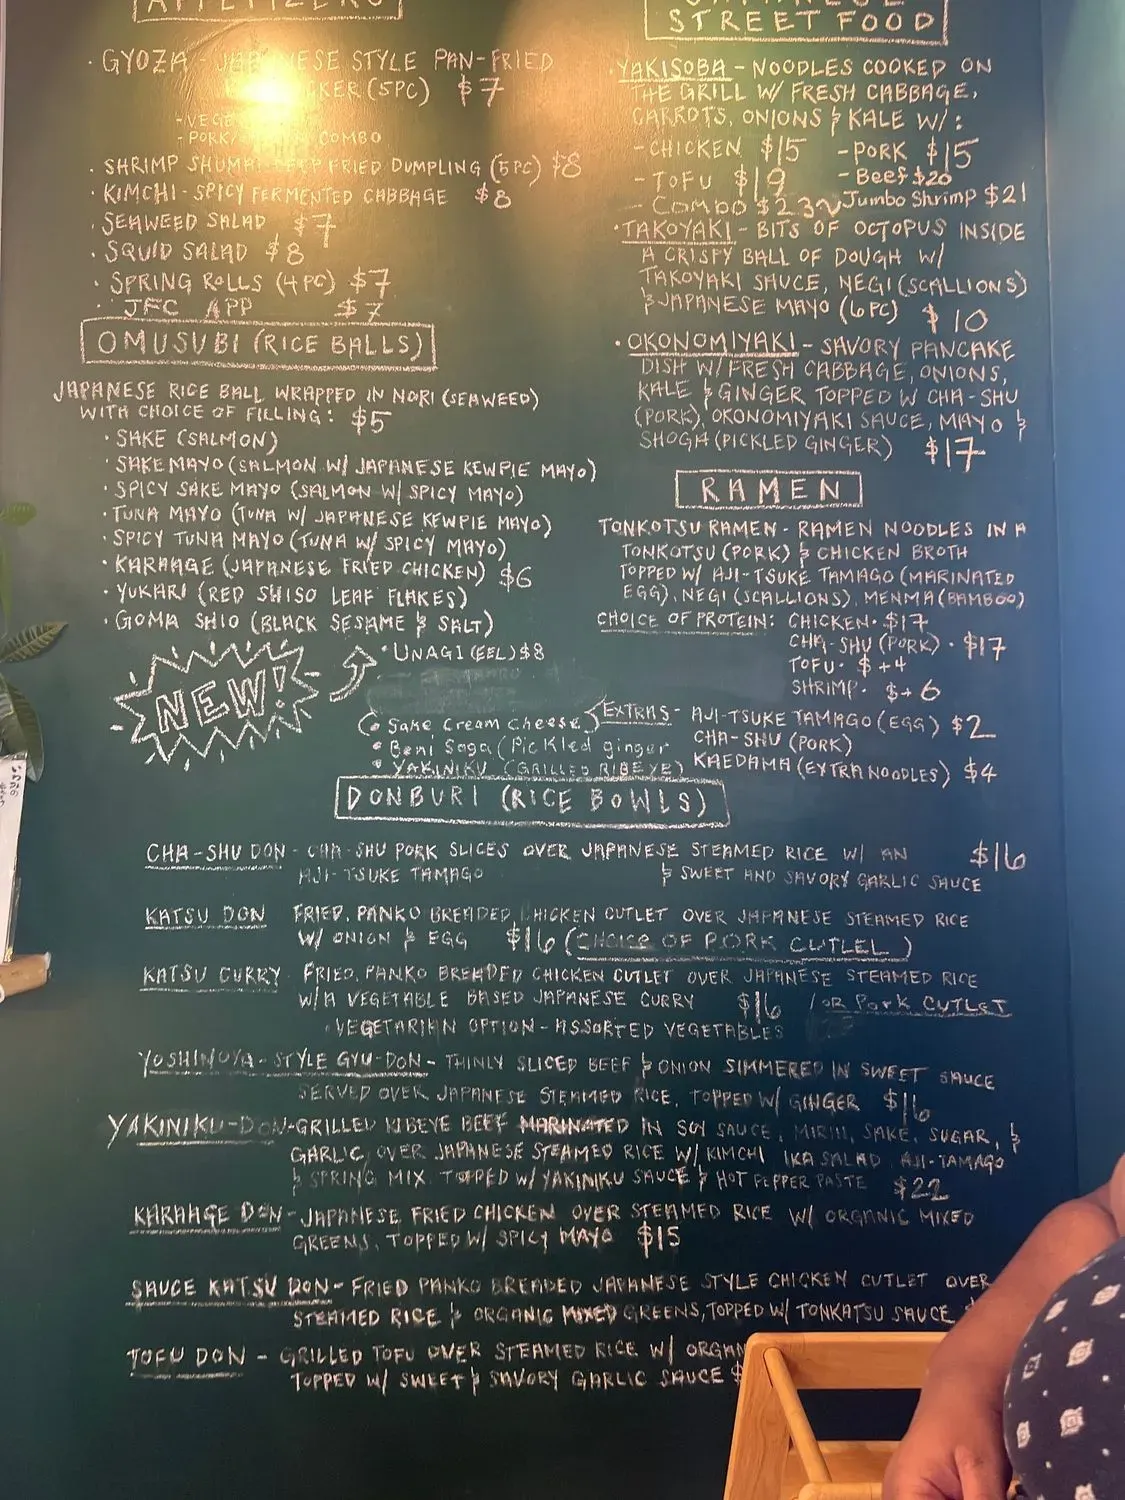 APPETIZERS
· GYOZA - JAPANESE STYLE PAN-FRIED
(5PC) $7
- VEGE
- PORK COMBO
· SHRIMP SHUMAI DEEP FRIED DUMPLING (5PC) $8
· KIMCHI - SPICY FERMENTED CABBAGE $8
· SEAWEED SALAD $7
· SQUID SALAD $8
· SPRING ROLLS (4PC) $7
· JFC APP $7
OMUSUBI (RICE BALLS)
JAPANESE RICE BALL WRAPPED IN NORI (SEAWEED)
WITH CHOICE OF FILLING: $5
· SAKE (SALMON)
· SAKE MAYO (SALMON W/ JAPANESE KEWPIE MAYO)
· SPICY SAKE MAYO (SALMON W/ SPICY MAYO)
· TUNA MAYO (TUNA W/ JAPANESE KEWPIE MAYO)
· SPICY TUNA MAYO (TUNA W/ SPICY MAYO)
· KARAAGE (JAPANESE FRIED CHICKEN) $6
· YUKARI (RED SHISO LEAF FLAKES)
· GOMA SHIO (BLACK SESAME & SALT)
NEW!
· UNAGI (EEL) $8
(• Sake Cream Cheese)
• Beni Soga (Pickled ginger
• YAKINIKU (GRILLED RIBEYE)
STREET FOOD
· YAKISOBA - NOODLES COOKED ON
THE GRILL W/ FRESH CABBAGE,
CARROTS, ONIONS & KALE W/:
- CHICKEN $15 - PORK $15
- TOFU $19 - Beef $20
- COMBO $23 ~ Jumbo Shrimp $21
· TAKOYAKI - BITS OF OCTOPUS INSIDE
A CRISPY BALL OF DOUGH W/
TAKOYAKI SAUCE, NEGI (SCALLIONS)
& JAPANESE MAYO (6PC) $10
· OKONOMIYAKI - SAVORY PANCAKE
DISH W/ FRESH CABBAGE, ONIONS,
KALE & GINGER TOPPED W CHA-SHU
(PORK), OKONOMIYAKI SAUCE, MAYO &
SHOGA (PICKLED GINGER) $17
RAMEN
TONKOTSU RAMEN - RAMEN NOODLES IN A
TONKOTSU (PORK) & CHICKEN BROTH
TOPPED W/ AJI-TSUKE TAMAGO (MARINATED
EGG), NEGI (SCALLIONS), MENMA (BAMBOO)
CHOICE OF PROTEIN: CHICKEN · $17
CHA-SHU (PORK) · $17
TOFU · $+4
SHRIMP · $+6
EXTRAS - AJI-TSUKE TAMAGO (EGG) $2
CHA-SHU (PORK)
KAEDAMA (EXTRA NOODLES) $4
DONBURI (RICE BOWLS)
CHA-SHU DON - CHA-SHU PORK SLICES OVER JAPANESE STEAMED RICE W/ AN $16
AJI-TSUKE TAMAGO & SWEET AND SAVORY GARLIC SAUCE
KATSU DON FRIED, PANKO BREADED, CHICKEN CUTLET OVER JAPANESE STEAMED RICE
W/ ONION & EGG $16 (CHOICE OF PORK CUTLEL)
KATSU CURRY FRIED, PANKO BREADED CHICKEN CUTLET OVER JAPANESE STEAMED RICE
W/ A VEGETABLE BASED JAPANESE CURRY $16 / OR PORK CUTLET
· VEGETARIAN OPTION - ASSORTED VEGETABLES
YOSHINOYA-STYLE GYU-DON - THINLY SLICED BEEF & ONION SIMMERED IN SWEET SAUCE
SERVED OVER JAPANESE STEAMED RICE, TOPPED W/ GINGER $16
YAKINIKU-DON - GRILLED RIBEYE BEEF MARINATED IN SOY SAUCE, MIRIN, SAKE, SUGAR, &
GARLIC, OVER JAPANESE STEAMED RICE W/ KIMCHI IKA SALAD AJI-TAMAGO
& SPRING MIX TOPPED W/ YAKINIKU SAUCE & HOT PEPPER PASTE $22
KARAAGE DON - JAPANESE FRIED CHICKEN OVER STEAMED RICE W/ ORGANIC MIXED
GREENS, TOPPED W/ SPICY MAYO $15
SAUCE KATSU DON - FRIED PANKO BREADED JAPANESE STYLE CHICKEN CUTLET OVER
STEAMED RICE & ORGANIC MIXED GREENS, TOPPED W/ TONKATSU SAUCE
TOFU DON - GRILLED TOFU OVER STEAMED RICE W/ ORGAN
TOPPED W/ SWEET & SAVORY GARLIC SAUCE $